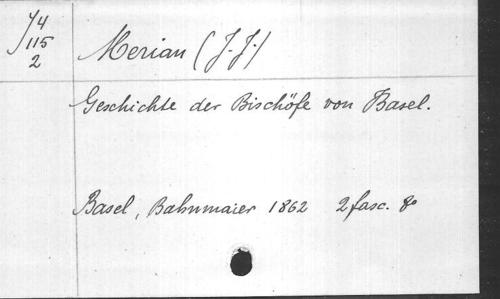 Y4
115
2
Merian (J.J.)
Geschichte der Bischöfe von Basel.
Basel, Bahnmaier 1862 2 fasc. 8º